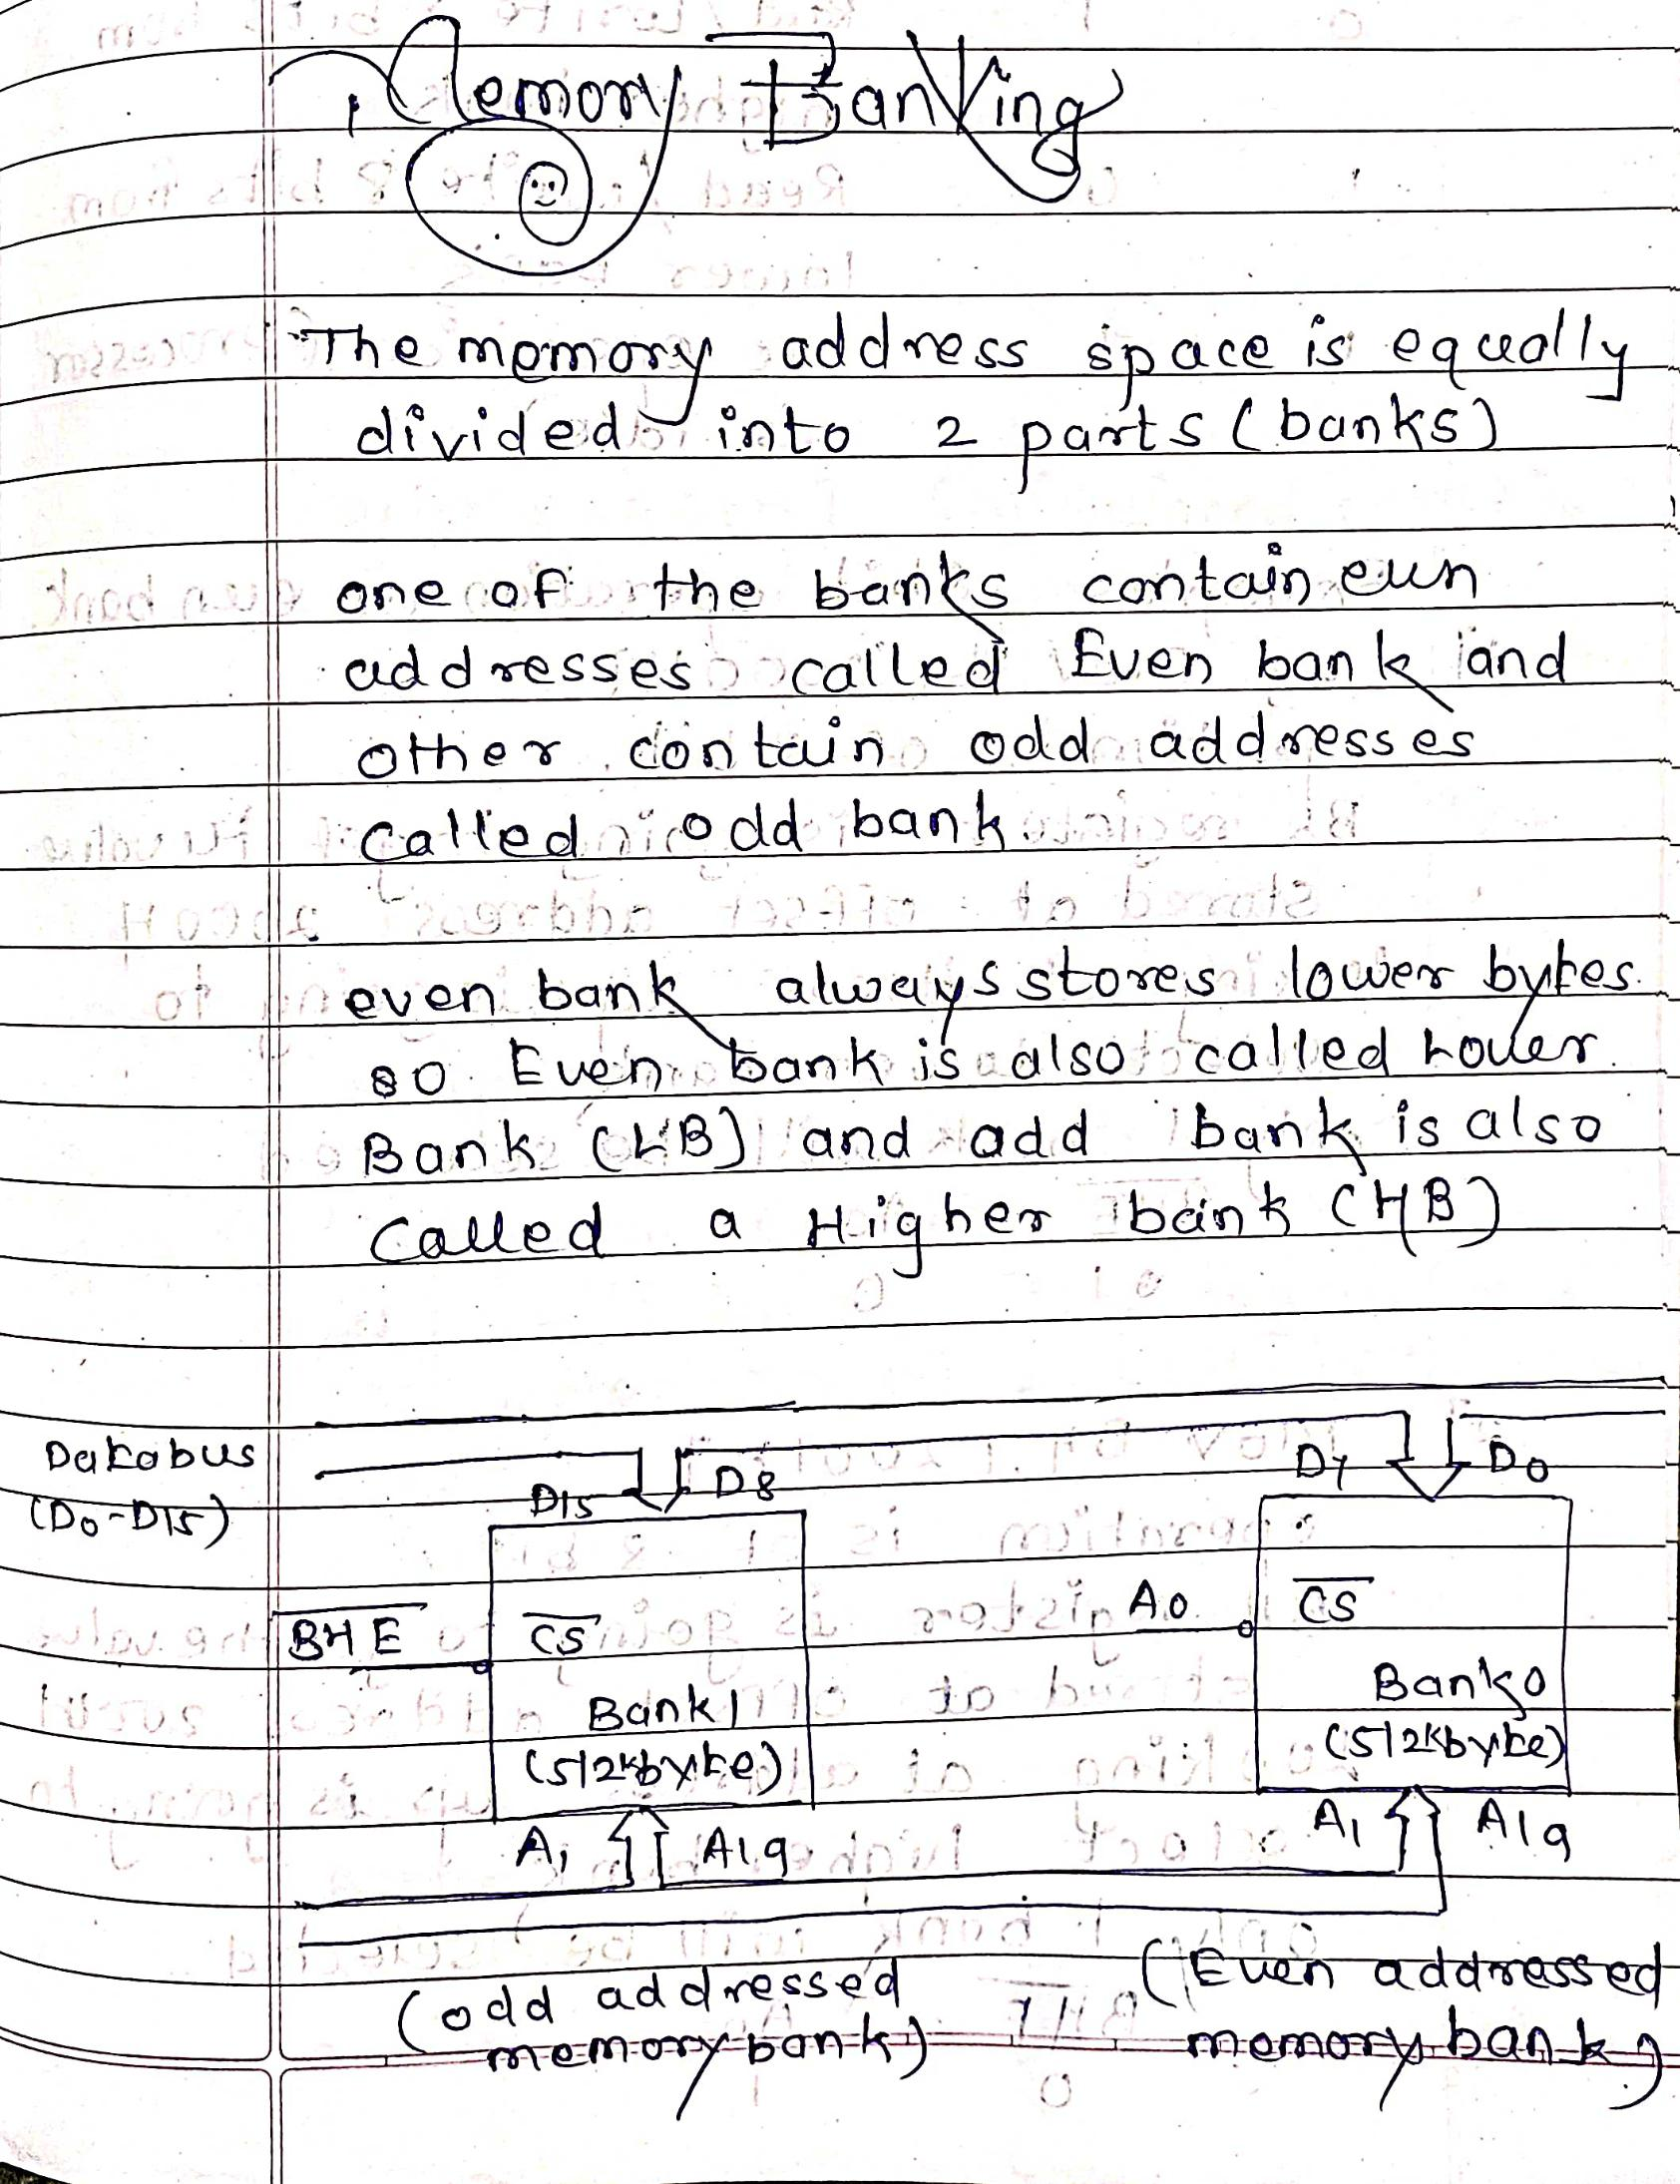 Memory Banking
The memory address space is equally
divided into 2 parts (banks)
one of the banks contain eun
addresses called Even bank and
other contain odd addresses
called odd bank
even bank always stores lower bytes
so Even bank is also called Lower
Bank (LB) and add bank is also
called a Higher bank (HB)
Databus
(D0-D15)
D15 D8
D7 D0
BHE CS
A0 CS
Bank 1
(512Kbyte)
Bank 0
(512Kbyte)
A1 A19
A1 A19
(odd addressed
memory bank)
(Even addressed
memory bank)